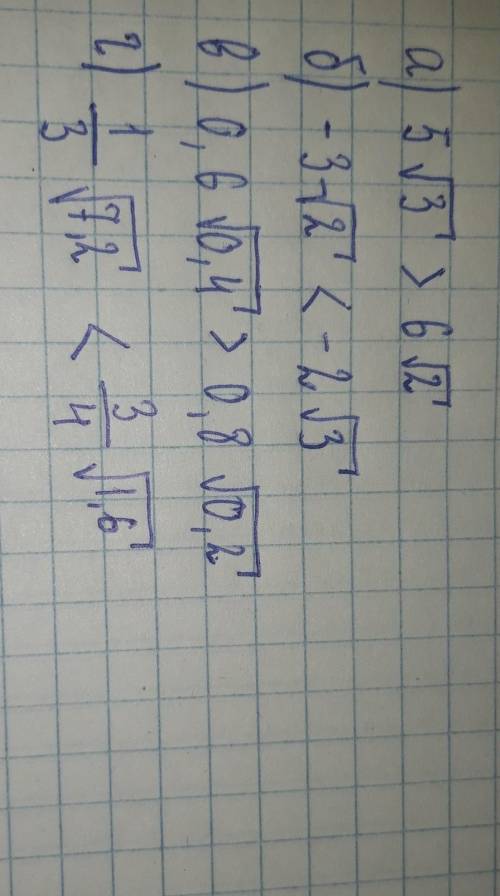 а) 5√3 > 6√2
б) -3√2 < -2√3
в) 0,6√0,4 > 0,8√0,2
г) 1/3 √7,2 < 3/4 √1,6